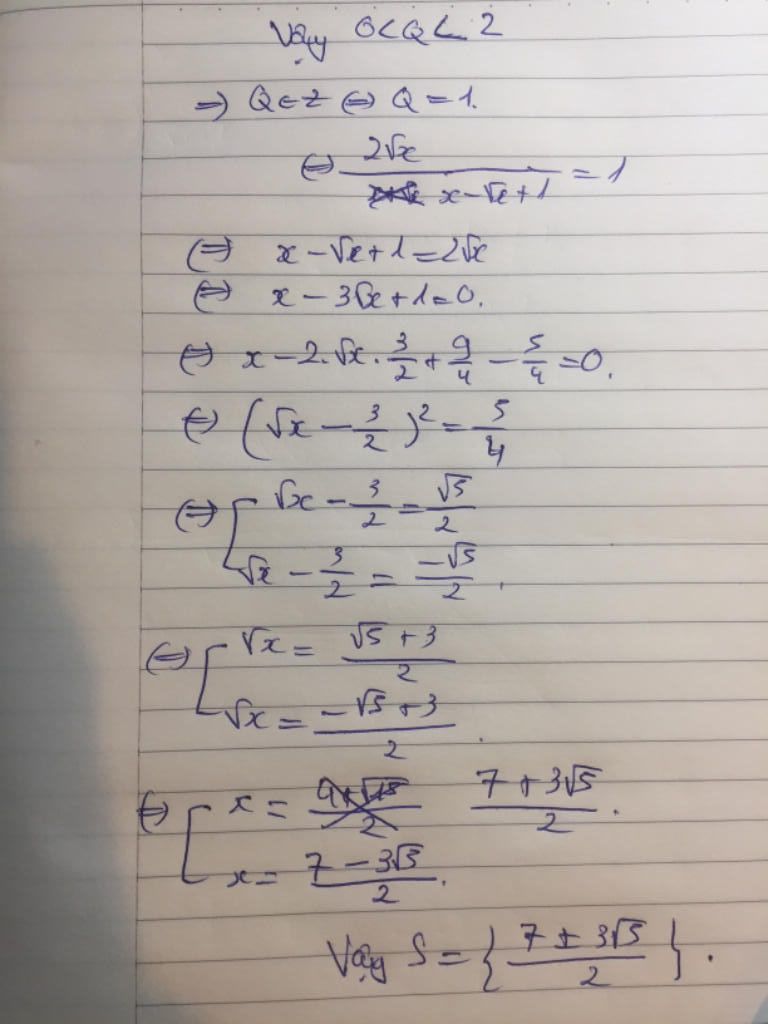 Vậy 0<Q<2
⇒ Q∈Z ⇔ Q=1.
⇔ 2√x / (x-√x+1) = 1
⇔ x-√x+1=2√x
⇔ x-3√x+1=0.
⇔ x-2.√x.3/2+9/4-5/4=0.
⇔ (√x-3/2)²=5/4
⇔ [ √x-3/2=√5/2
√x-3/2=-√5/2.
⇔ [ √x=(√5+3)/2
√x=(-√5+3)/2.
⇔ [ x= (7+3√5)/2.
x=(7-3√5)/2.
Vậy S={(7±3√5)/2}.